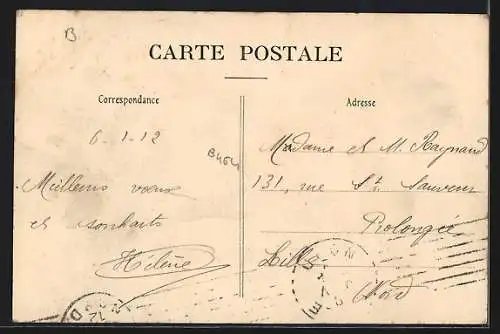 B
CARTE POSTALE
Correspondance
Adresse
6-1-12
B464
Meilleurs vœux
et souhaits
Hélène
Madame et M. Raynaud
131, rue St. Sauveur
Prolongée
Lille
Nord